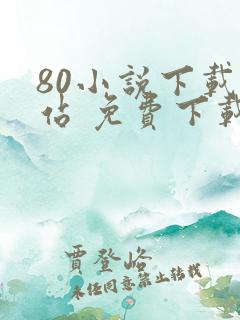 80小説下載
佔 免費下載
賈登峪
未任同意禁止转载